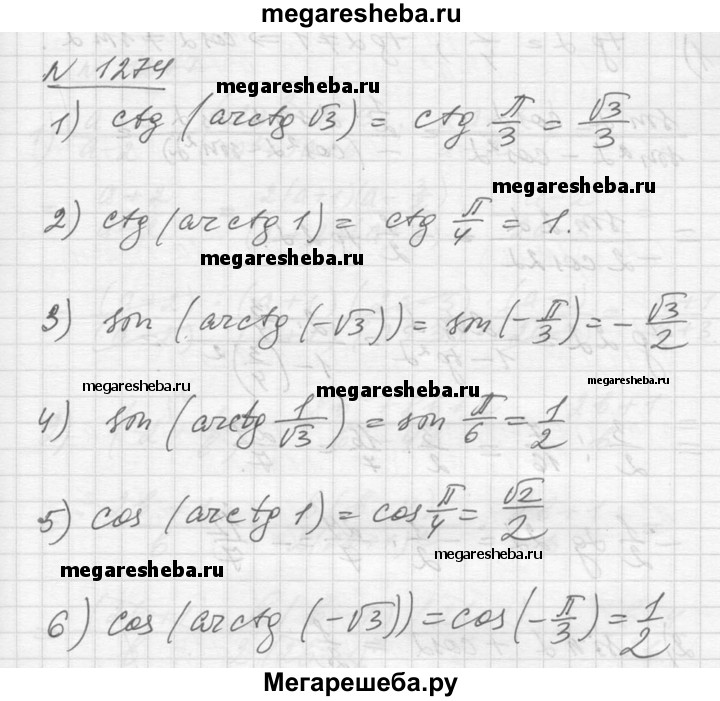 megaresheba.ru
N 1274
megaresheba.ru
1) ctg (arctg √3) = ctg π/3 = √3/3
megaresheba.ru
2) ctg (arctg 1) = ctg π/4 = 1.
megaresheba.ru
3) sin (arctg (-√3)) = sin (-π/3) = -√3/2
megaresheba.ru
megaresheba.ru
megaresheba.ru
4) sin (arctg 1/√3) = sin π/6 = 1/2
5) cos (arctg 1) = cos π/4 = √2/2
megaresheba.ru
megaresheba.ru
6) cos (arctg (-√3)) = cos (-π/3) = 1/2
Мегарешеба.ру